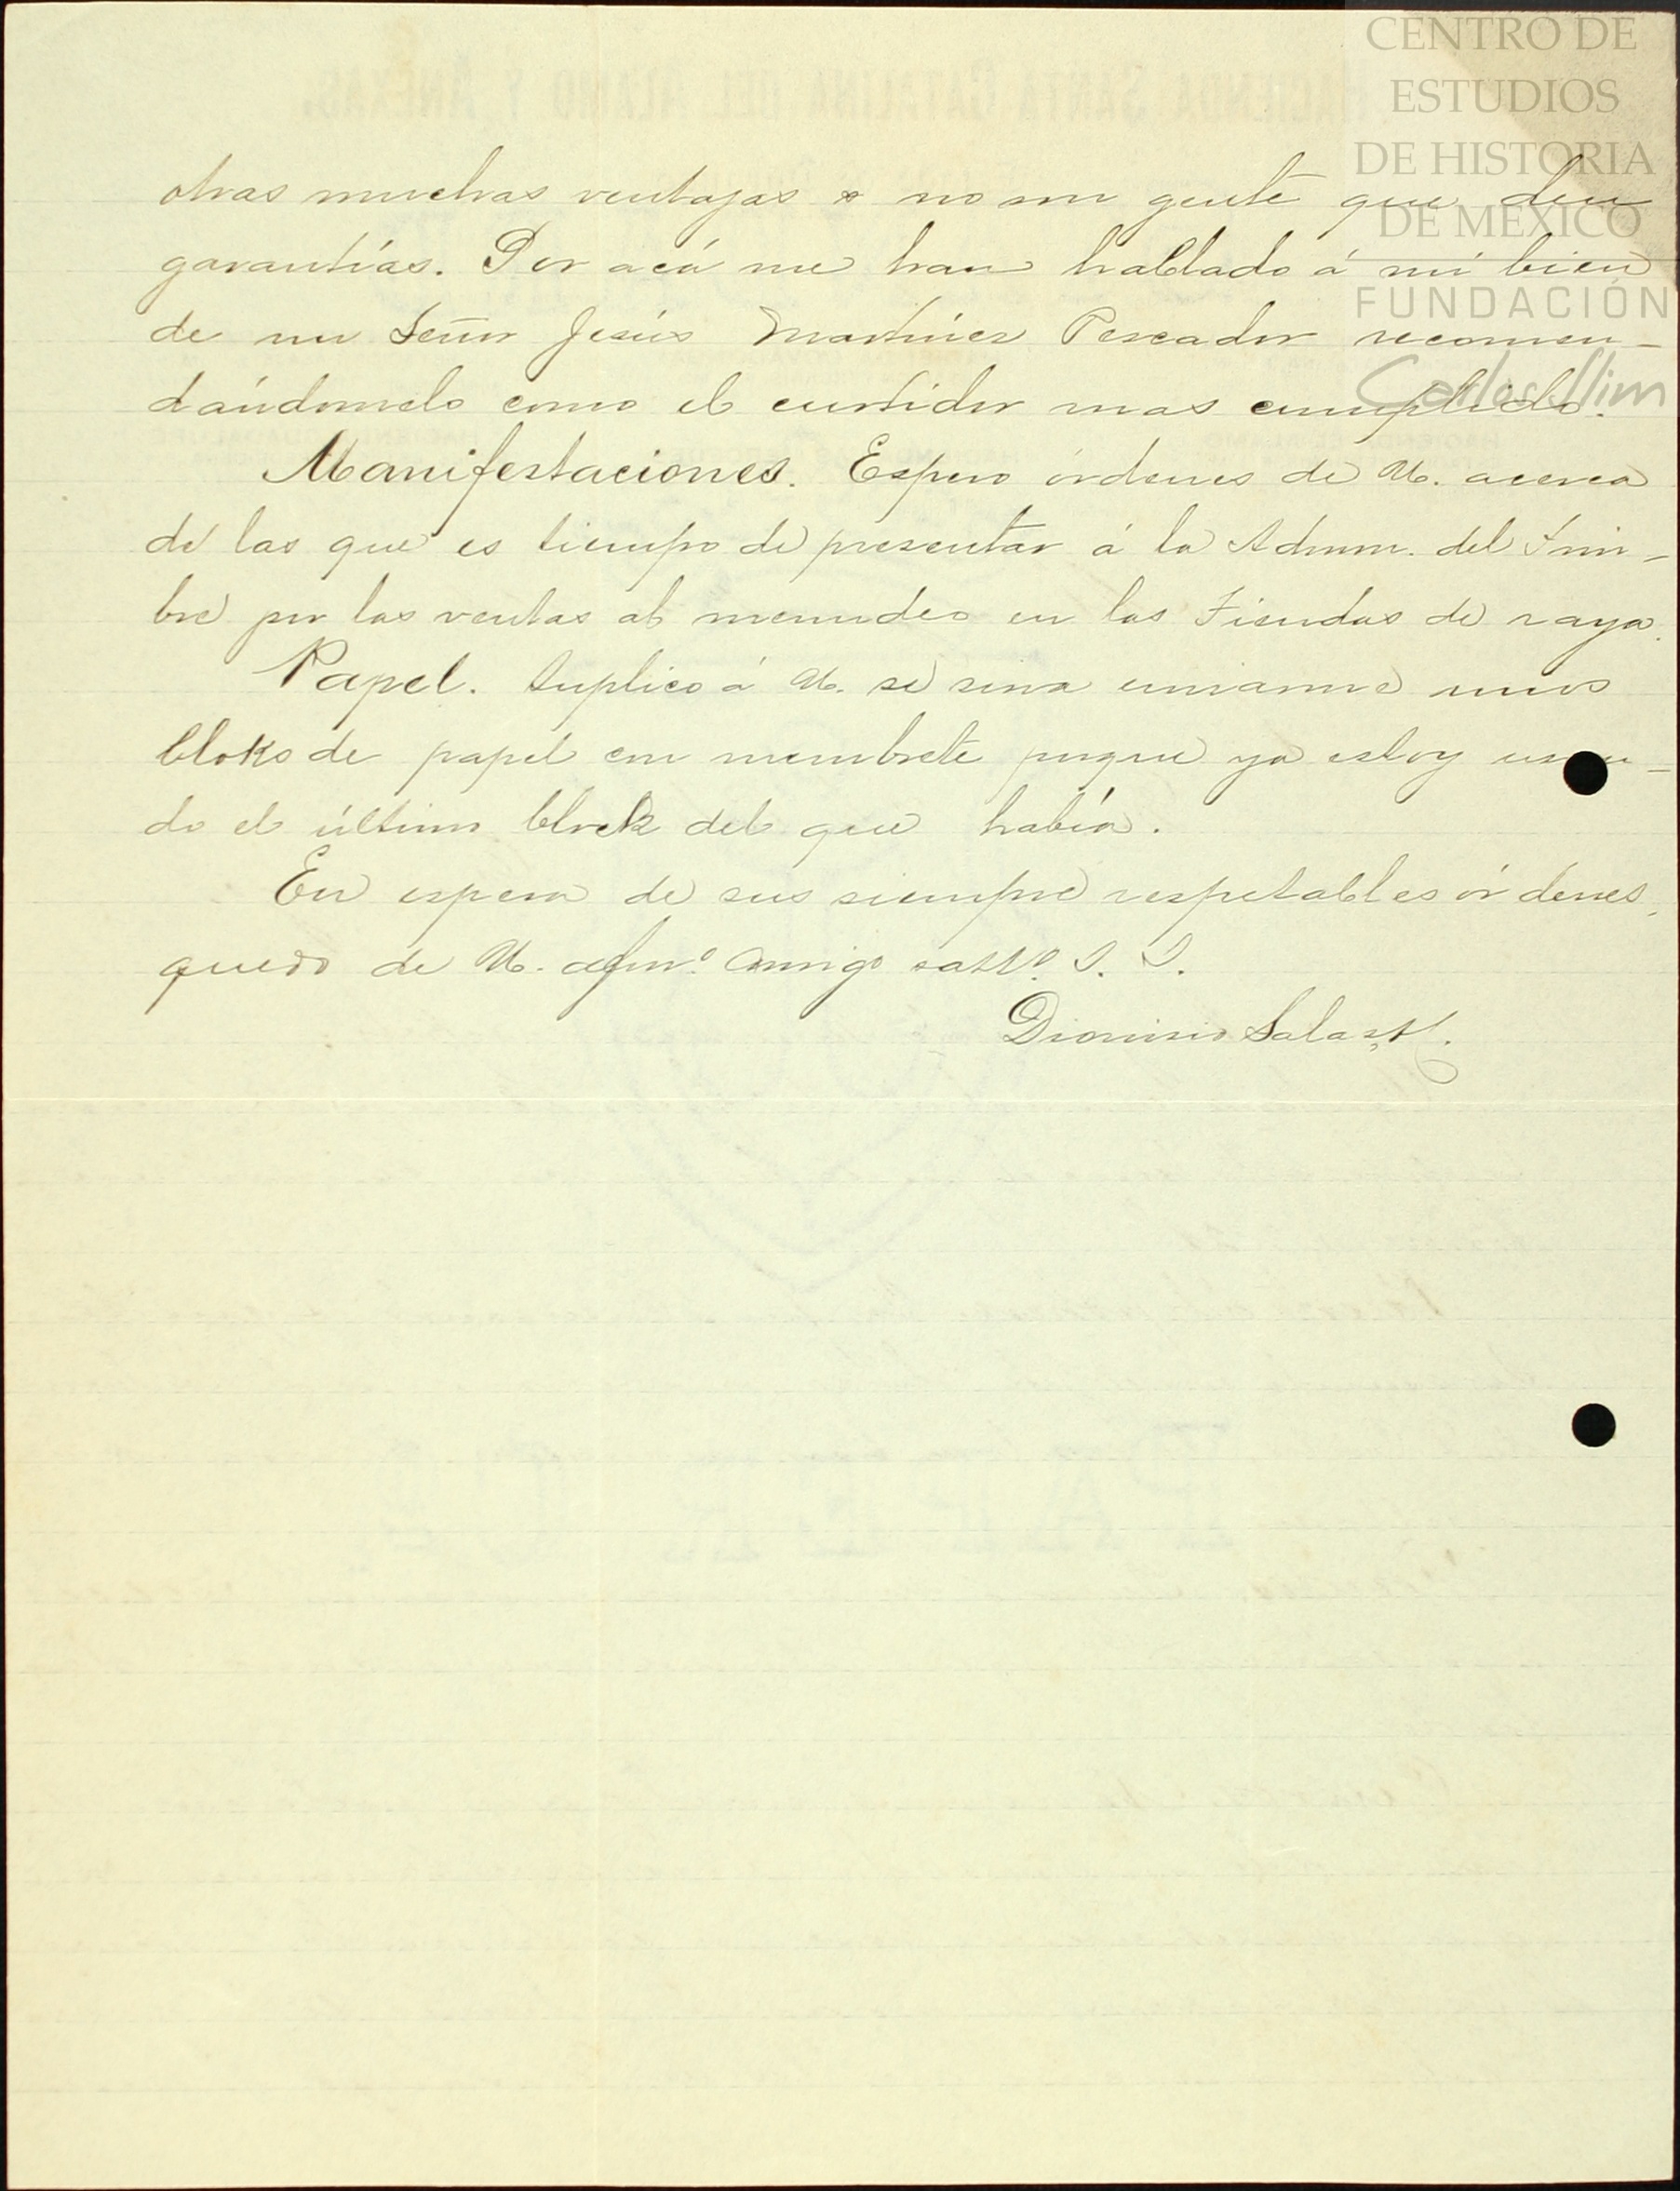 CENTRO DE
ESTUDIOS
DE HISTORIA
DE MÉXICO
FUNDACIÓN
Carlos Slim
otras muchas ventajas o no son gente que den
garantías. Por acá me han hablado á mi bien
de un Señor Jesús Martínez Pescador recomen-
dándomelo como el curtidor mas cumplido.
Manifestaciones. Espero órdenes de U. acerca
de las que es tiempo de presentar á la Admon. del Tim-
bre por las ventas al menudeo en las Tiendas de raya.
Papel. Suplico á U. se sirva enviarme unos
bloks de papel con membrete porque ya estoy usan-
do el último block del que había.
En espera de sus siempre respetables órdenes,
quedo de U. afmo. amigo atto. S. S.
Dionisio Salas